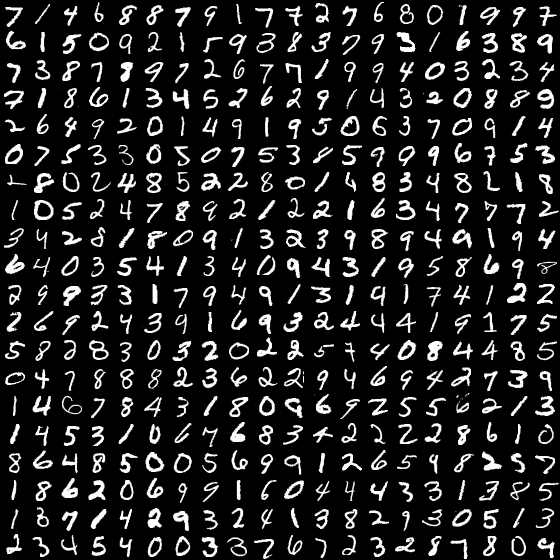 7 1 4 6 8 8 7 9 1 7 7 2 7 6 8 0 1 9 9 7
6 1 5 0 9 2 1 5 9 9 8 3 7 9 3 1 6 3 8 9
7 3 8 7 8 9 7 2 6 7 7 1 9 9 4 0 3 2 3 4
7 1 8 6 1 3 4 5 2 6 2 9 1 4 3 2 0 8 8 9
2 6 4 9 2 0 1 4 9 1 9 5 0 6 3 7 0 9 1 4
0 7 5 3 3 0 5 0 7 5 3 8 5 9 9 9 6 7 5 3
1 8 0 2 4 8 5 2 2 8 0 1 6 8 3 4 8 2 1 8
1 0 5 2 4 7 8 9 2 1 2 2 1 6 3 4 7 7 7 2
3 4 2 8 1 8 0 9 1 3 2 3 9 8 9 4 9 1 9 4
6 4 0 3 5 4 1 3 4 0 9 4 3 1 9 5 8 6 9 8
2 9 9 3 3 1 7 9 4 9 1 3 1 9 1 7 4 1 2 2
2 6 9 2 4 3 9 1 6 9 3 2 4 4 4 1 9 1 7 5
5 8 2 8 3 0 3 2 0 2 2 5 7 4 0 8 4 4 8 5
0 4 7 8 8 8 2 3 6 2 2 9 4 6 9 4 2 7 3 9
1 4 6 7 8 4 3 1 8 0 8 6 9 2 5 5 6 2 1 3
1 4 5 3 1 0 6 7 6 8 3 4 2 2 2 2 8 6 1 0
8 6 4 8 5 0 0 5 6 9 9 1 2 6 5 9 8 2 5 7
1 8 6 2 0 6 9 9 1 6 0 4 4 4 3 3 1 3 8 5
1 8 7 1 4 2 9 3 2 4 1 3 8 2 9 3 0 5 1 3
2 3 4 5 4 0 0 3 3 7 6 7 2 3 2 8 7 8 0 9